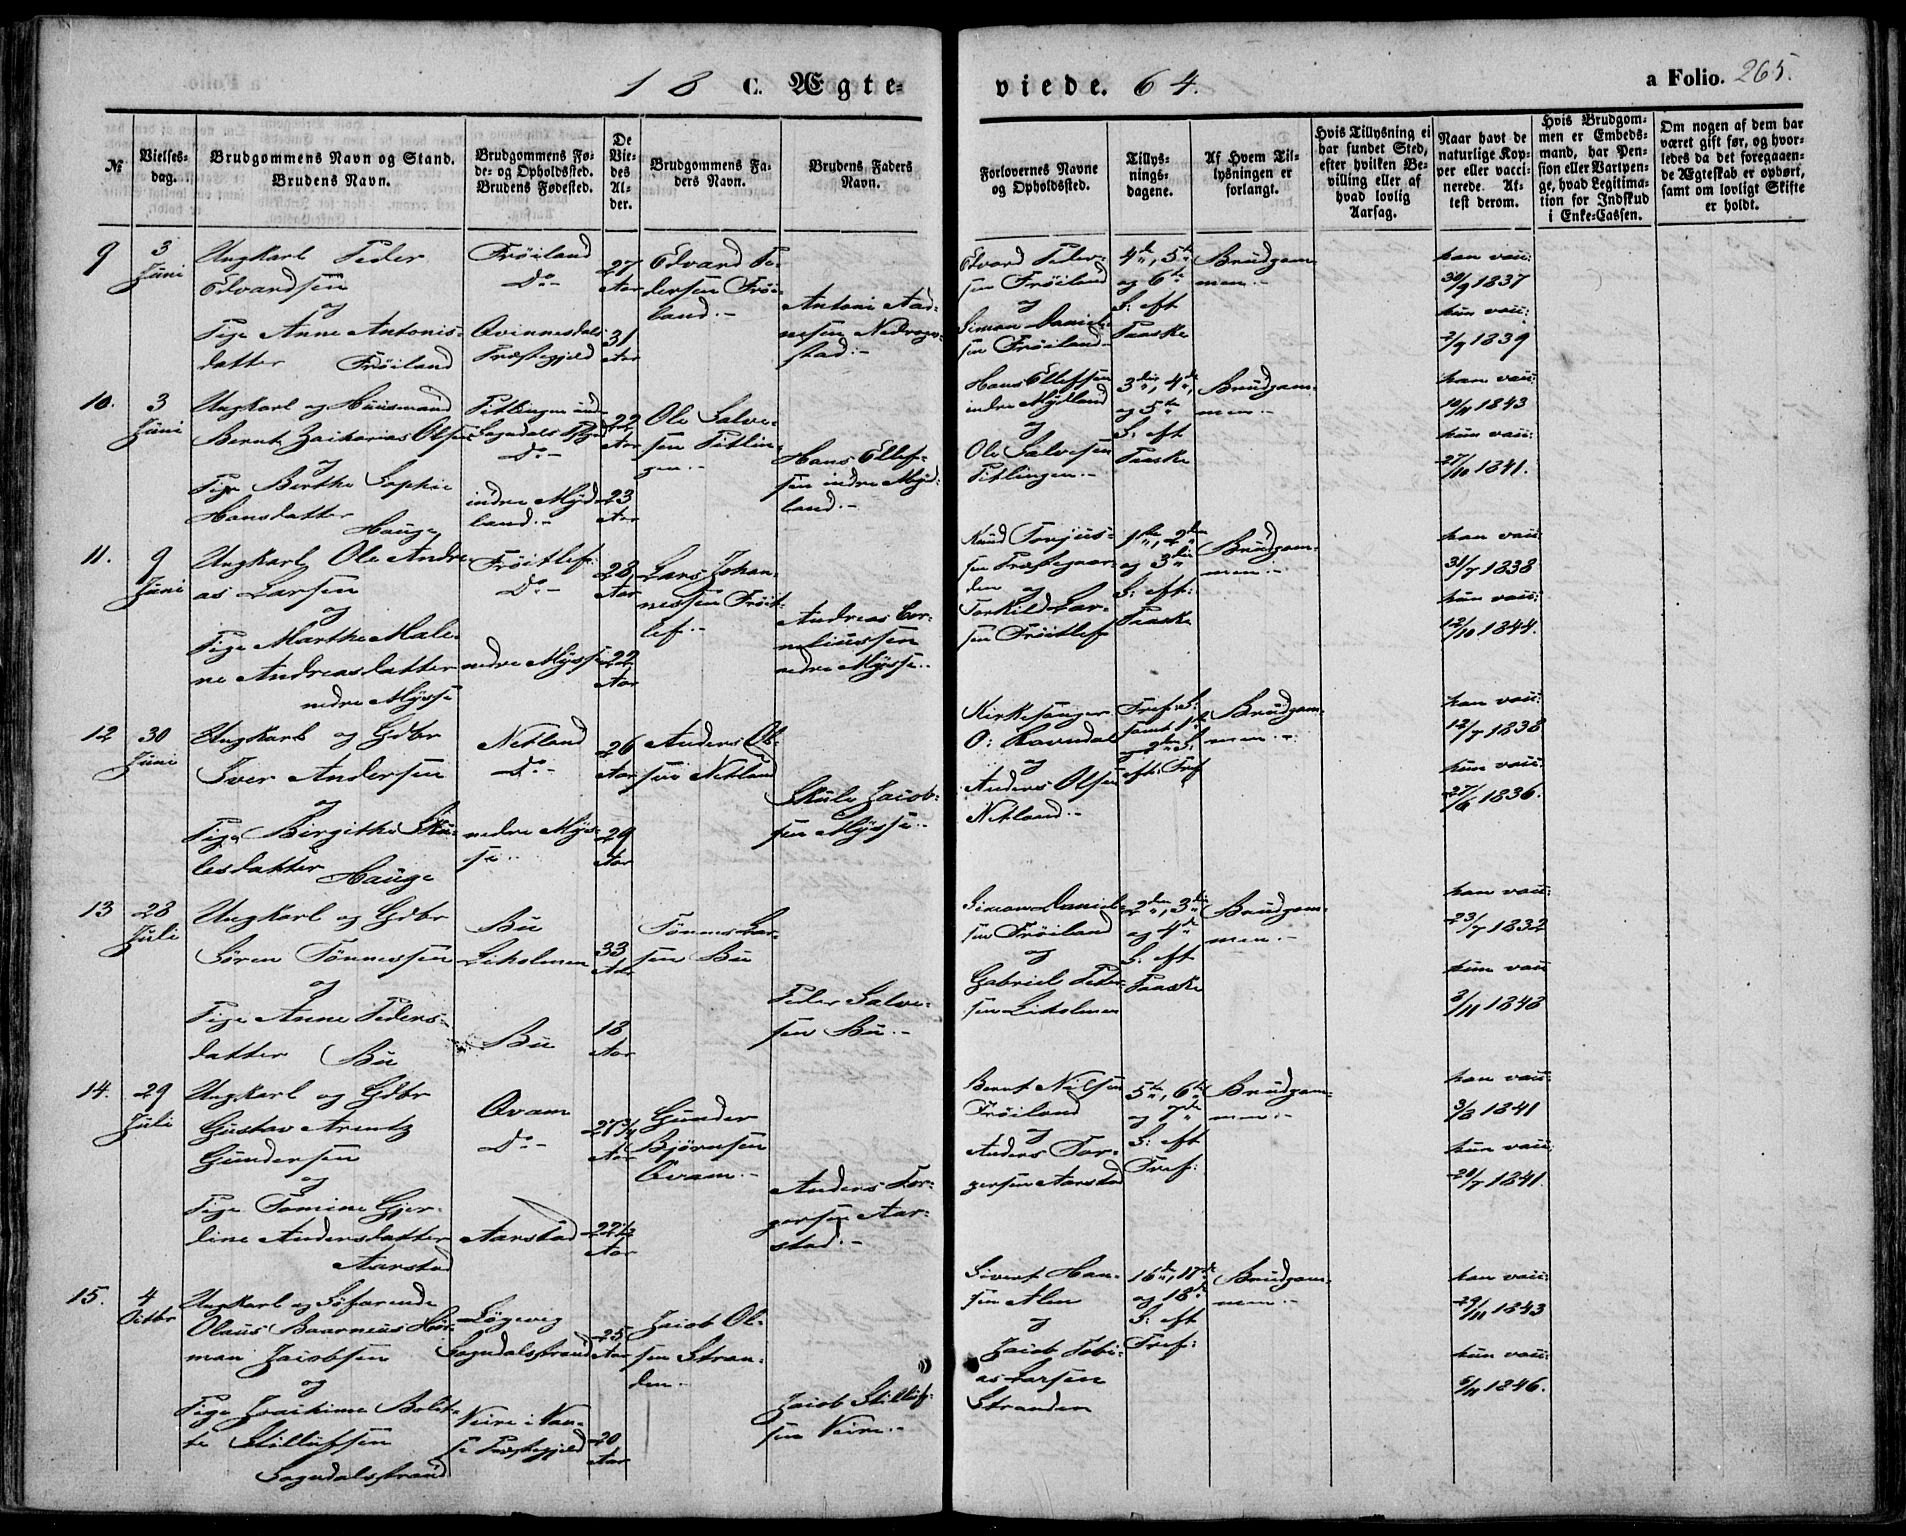 18 C. Ægte-
viede. 64.
a Folio. 265.
№
Vielses-
dag.
Brudgommens Navn og Stand.
Brudens Navn.
Brudgommens Fø-
de- og Opholdssted.
Brudens Fødested.
De
Vie-
des
Al-
der.
Brudgommens Fa-
ders Navn.
Brudens Faders
Navn.
Forlovernes Navne
og Opholdssted.
Tillys-
nings-
dagene.
Af Hvem Til-
lysningen er
forlangt.
Hvis Tillysning ei
har fundet Sted,
efter hvilken Be-
villing eller af
hvad lovlig
Aarsag.
Naar havt de
naturlige Kop-
per eller vacci-
nerede. At-
test derom.
Hvis Brudgom-
men er Embeds-
mand, har Pen-
sion eller Vartpen-
ge, hvad Legitima-
tion for Indskud
i Enke-Cassen.
Om nogen af dem har
været gift før, og hvor-
ledes da det foregaaen-
de Ægteskab er ophørt,
samt om lovligt Skifte
er holdt.
9
3
Juni
Ungkarl Peder
Edvardsen
og
Pige Anne Antonis-
datter Frøiland
Frøiland
Do -
Qvinnesdals
Præstegjeld
27
Aar
31
Aar
Edvard Pe-
dersen Frøi-
land. -
Antoni Aad-
nesen
stad. -
Edvard Peder-
sen Frøiland
og
Simon Daniel-
sen Frøiland
4de, 5te
og 6te
S: eft
Paaske
Brudgom-
men. -
han vacc:
30/9 1837
hun vacc:
2/9 1839
10.
3
Juni
Ungkarl og Huusmand
Bernt Zacharias Olsen
og
Pige Berthe Sophie
Hansdatter
Hauge
Titlingen
Sogndals
Do -
indre Myd-
land. -
22
Aar
23
Aar
Ole Salve-
sen Titlin-
gen. -
Hans Ellef-
sen indre Myd-
land. -
Hans Ellefsen
indre Mydland
og
Ole Salvesen
Titlingen. -
3die, 4de,
og 5te
S: eft
Paaske
Brudgom-
men. -
han vacc:
10/11 1843
hun vacc:
27/10 1841.
11.
9
Juni
Ungkarl Ole Andre-
as Larsen
og
Pige Marthe Male-
ne Andreasdatter
nedre Mysse
Frøitlef
Do -
nedre Mysse
28
Aar
22
Aar
Lars Johan-
nessen Frøit-
lef. -
Andreas Cor-
neliussen
nedre Mysse. -
Knud Tonjus-
sen Præstegaar-
den og
Torkild Lar-
sen Frøitlef
1ste, 2den
og 3die
S: eft:
Paaske
Brudgom-
men. -
han vacc:
31/7 1838
hun vacc:
12/10 1844.
12
30
Juni
Ungkarl og Gdbr
Iver Andersen
og
Pige Birgithe Sku-
lesdatter Hauge
Netland
Do -
nedre Mys-
se. -
26
Aar
29
Aar
Anders Ol-
sen Netland
Skule Jacob-
sen Mysse. -
Kirkesanger
O: Ravndal
og
Anders Olsen
Netland. -
Tref: S:
samt 1ste
og 2den S:
eft: Tref
Brudgom-
men. -
han vacc:
12/7 1838
hun vacc:
27/6 1836.
13
28
Juli
Ungkarl og Gdbr
Søren Tønnessen
og
Pige Anne Peders-
datter Bu
Bu
Liholmen
Bu
33
Aar
18
Aar
Tønnes Lar-
sen Bu
Peder Salve-
sen Bu. -
Simon Daniel-
sen Frøiland
og
Gabriel Peder-
sen Liholmen
2den, 3die
og 4de
S. eft
Paaske
Brudgom-
men. -
han vacc:
23/7 1832
hun vacc
3/11 1848
14.
29
Juli
Ungkarl og Gdbr
Gustav Arentz
Gundersen
og
Pige Tomine Gjer-
line Andersdatter
Aarstad
Qvam
Do -
Aarstad
27 1/4
Aar
22 1/2
Aar
Gunder
Bjørnsen
Qvam. -
Anders Tor-
gersen Aar-
stad. -
Bernt Nilsen
Frøiland
og
Anders Tor-
gersen Aarstad
5te, 6te
og 7de
S: eft
Tref:
Brudgom-
men. -
han vacc:
3/8 1841
hun vacc:
20/7 1841.
15.
4
Octbr
Ungkarl og Søfarende
Olaus Baarneus Hør-
man Jacobsen
og
Pige Joachime Bolet-
te Stillufsen
Sogndalsstrand
Løgevig
Sogndalsstrand
Veire i Van-
se Præstegjeld
25
Aar
20
Aar
Jacob Ol-
sen Stran-
den. -
Jacob Stilluf-
sen Veire. -
Sivert Han-
sen Alen
og
Jacob Tobi-
as Larsen
Stranden
16de, 17de
og 18de
S: eft
Tref:
Brudgom-
men. -
han vacc:
29/11 1843
hun vacc:
5/11 1846.